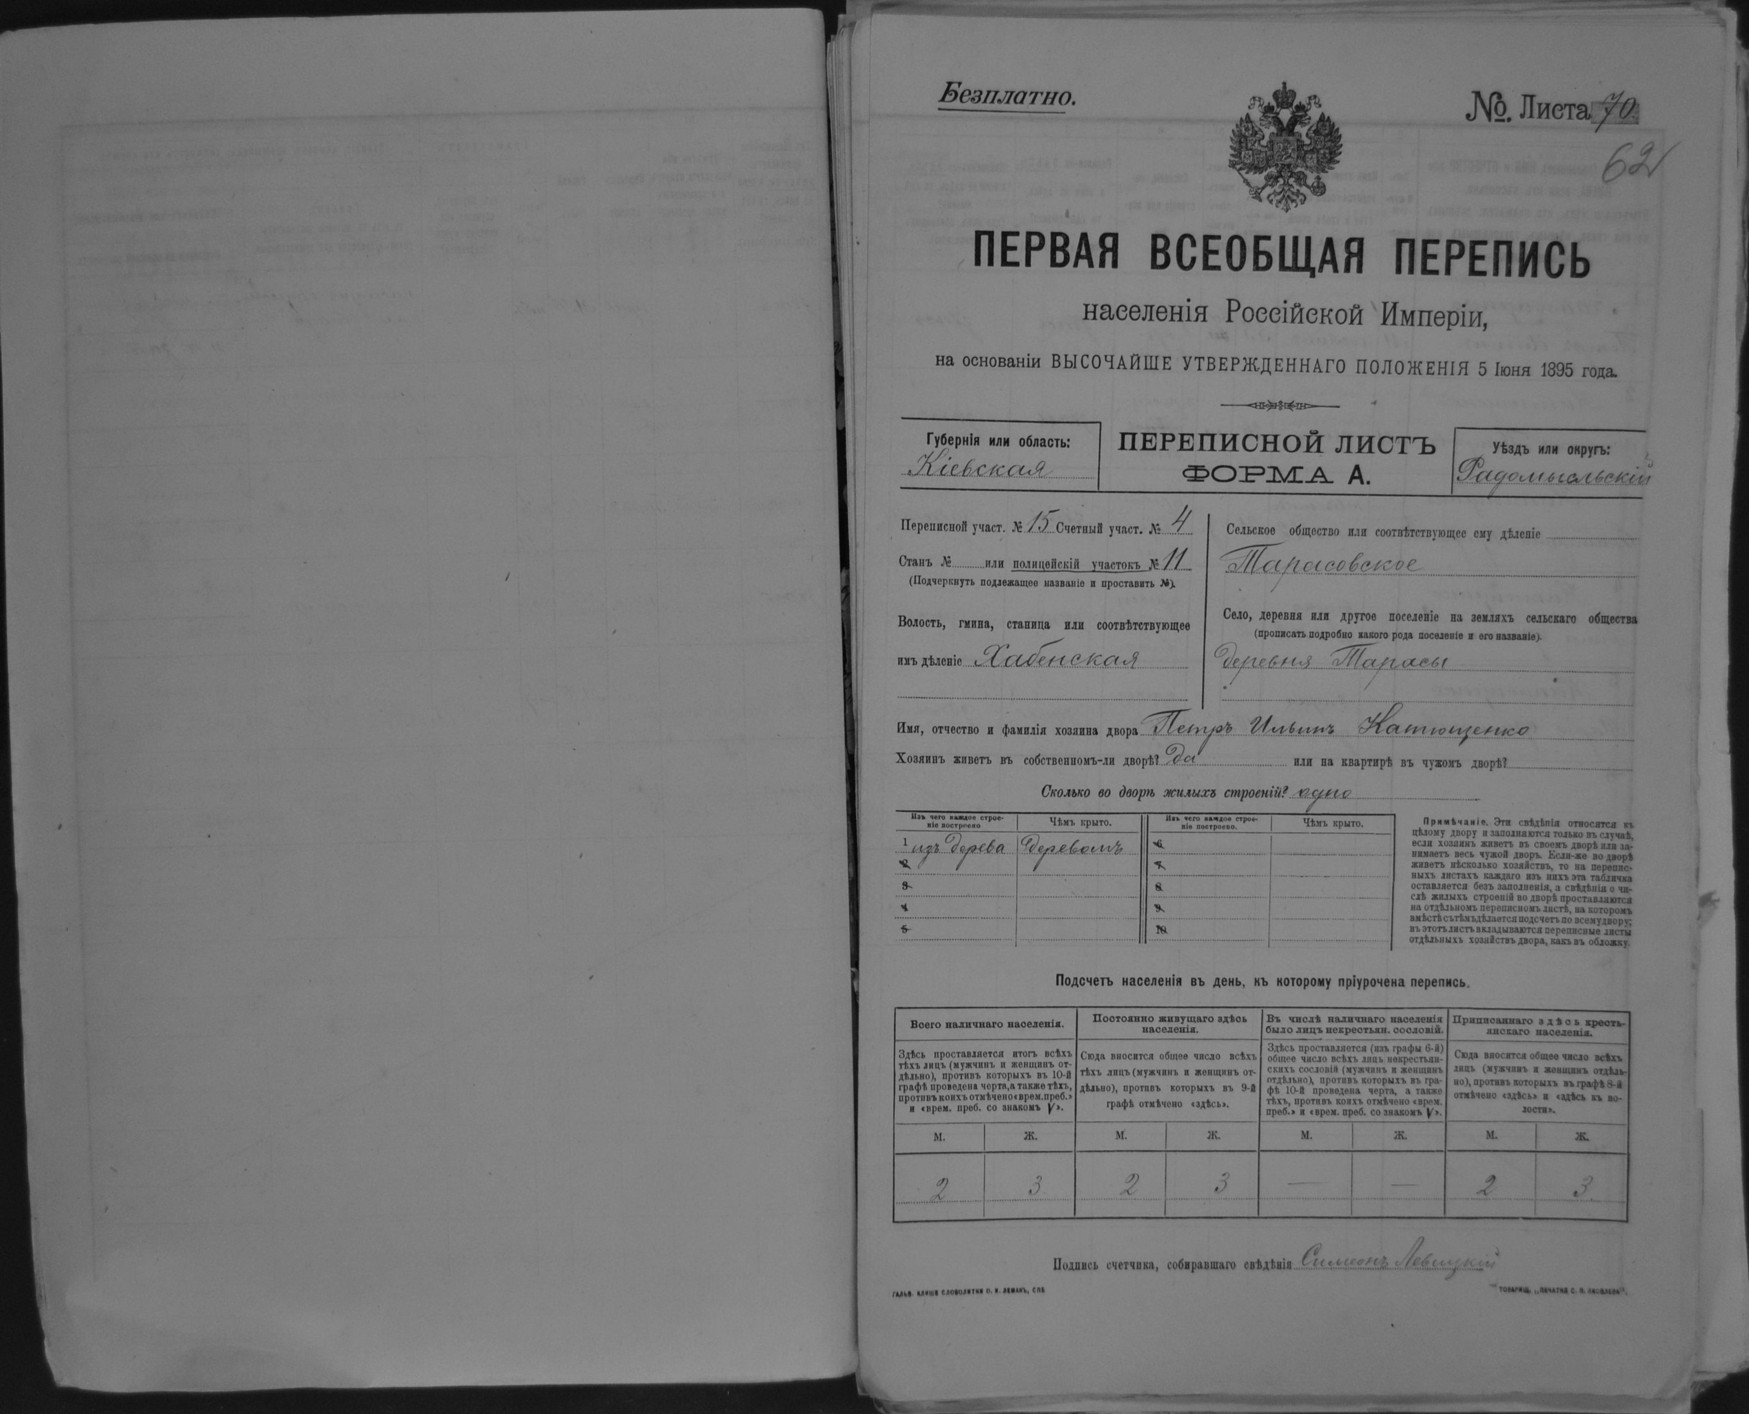 Безплатно.
№. Листа 70
62
ПЕРВАЯ ВСЕОБЩАЯ ПЕРЕПИСЬ
населенія Россійской Имперіи,
на основаніи ВЫСОЧАЙШЕ УТВЕРЖДЕННАГО ПОЛОЖЕНІЯ 5 Іюня 1895 года.
Губернія или область:
Кіевская
ПЕРЕПИСНОЙ ЛИСТЪ
ФОРМА А.
Уѣздъ или округъ:
Радомысльскій
Переписной участ. № 15 Счетный участ. № 4
Станъ № или полицейскій участокъ № 11
(Подчеркнуть подлежащее названіе и проставить №).
Волость, гмина, станица или соотвѣтствующее
имъ дѣленіе Хабенская
Сельское общество или соотвѣтствующее ему дѣленіе
Тарасовское
Село, деревня или другое поселеніе на земляхъ сельскаго общества
(прописать подробно какого рода поселеніе и его названіе).
деревня Тарасы
Имя, отчество и фамилія хозяина двора Петръ Ильинъ Катющенко
Хозяинъ живетъ въ собственномъ-ли дворѣ? Да или на квартирѣ въ чужомъ дворѣ?
Сколько во дворѣ жилыхъ строеній? одно
Изъ чего каждое строе-
ніе построено
Чѣмъ крыто.
Изъ чего каждое строе-
ніе построено.
Чѣмъ крыто.
1 изъ дерева деревомъ 6
2 7
3 8
4 9
5 10
Примѣчаніе. Эти свѣдѣнія относятся къ
цѣлому двору и заполняются только въ случаѣ,
если хозяинъ живетъ въ своемъ дворѣ или за-
нимаетъ весь чужой дворъ. Если-же во дворѣ
живетъ нѣсколько хозяйствъ, то на перепис-
ныхъ листахъ каждаго изъ нихъ эта табличка
оставляется безъ заполненія, а свѣдѣнія о чи-
слѣ жилыхъ строеній во дворѣ проставляются
на отдѣльномъ переписномъ листѣ, на которомъ
вмѣстѣ съ тѣмъ дѣлается подсчетъ по всему двору;
въ этотъ листъ вкладываются переписные листы
отдѣльныхъ хозяйствъ двора, какъ въ обложку.
Подсчетъ населенія въ день, къ которому пріурочена перепись.
Всего наличнаго населенія.
Постоянно живущаго здѣсь
населенія.
Въ числѣ наличнаго населенія
было лицъ некрестьян. сословій.
Приписаннаго здѣсь кресть-
янскаго населенія.
Здѣсь проставляется итогъ всѣхъ
тѣхъ лицъ (мужчинъ и женщинъ от-
дѣльно), противъ которыхъ въ 10-й
графѣ проведена черта, а также тѣхъ,
противъ коихъ отмѣчено «врем. преб.»
и «врем. преб. со знакомъ V».
Сюда вносится общее число всѣхъ
тѣхъ лицъ (мужчинъ и женщинъ от-
дѣльно), противъ которыхъ въ 9-й
графѣ отмѣчено «здѣсь».
Здѣсь проставляется (изъ графы 6-й)
общее число всѣхъ лицъ некрестьян-
скихъ сословій (мужчинъ и женщинъ
отдѣльно), противъ которыхъ въ гра-
фѣ 10-й проведена черта, а также
тѣхъ, противъ коихъ отмѣчено «врем.
преб.» и «врем. преб. со знакомъ V».
Сюда вносится общее число всѣхъ
лицъ (мужчинъ и женщинъ отдѣль-
но), противъ которыхъ въ графѣ 8-й
отмѣчено «здѣсь» и «здѣсь къ во-
лости».
М. Ж. М. Ж. М. Ж. М. Ж.
2 3 2 3 — — 2 3
Подпись счетчика, собиравшаго свѣдѣнія Симеонъ Левицкій
ГАЛЬВ. КЛИШЕ СЛОВОЛИТНИ О. И. ЛЕМАНЪ, СПБ
ТОВАРИЩ. „ПЕЧАТНЯ С. П. ЯКОВЛЕВА“.